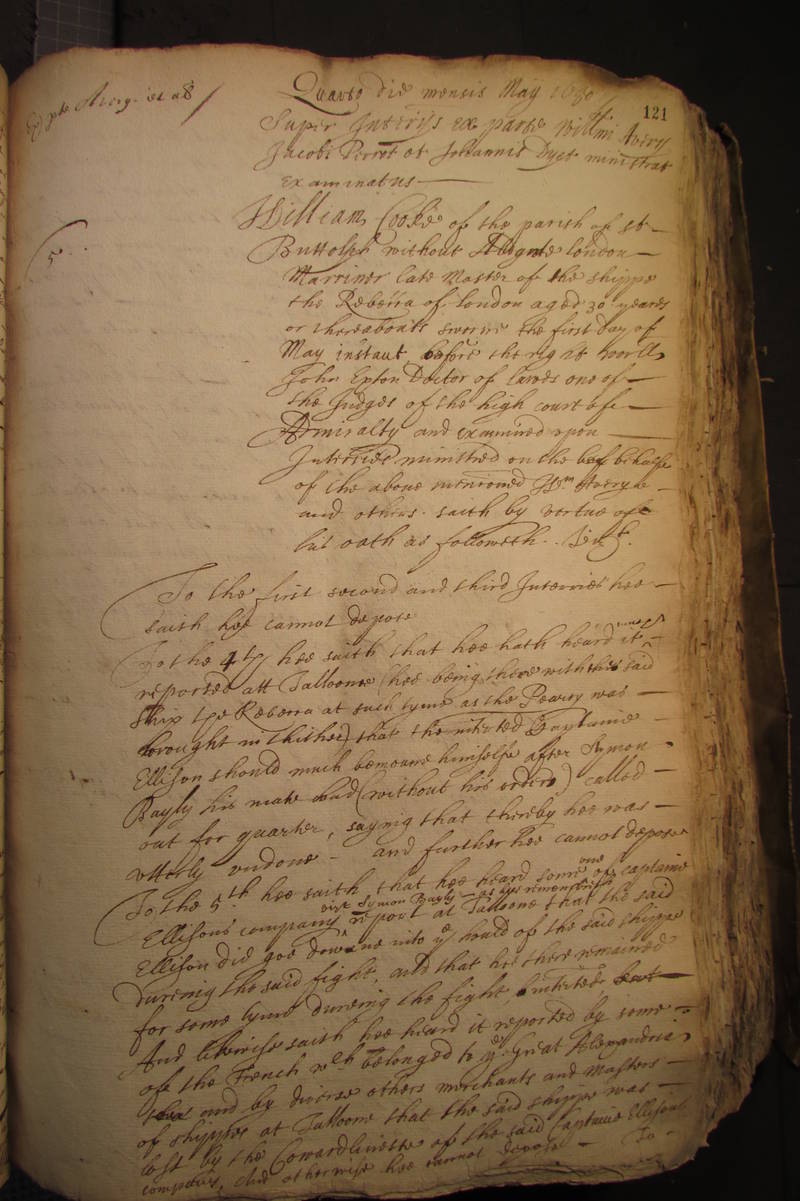 121
Quarto die mensis May 1650
Super Interijs ex parte Willmi Avery
Jacobi Perrot et Johannis Dyet ministrat
examinatus
5
William Cooke of the parish of St
Buttolph without Algate London
Marriner late Master of the shippe
the Rebecca of London aged 30 yeares
or thereabouts sworne the first day of
May instant before the right worll
John Exton Doctor of lawes one of
the Judges of the high court of
Admiralty and examined upon
Interries ministred on the behalfe
of the above mentioned Wm Avery
and others saith by vertue of
his oath as followeth
To the first second and third Interries hee
saith hee cannot depose
To the 4th hee saith that hee hath heard it
reported att Talloone (hee being there with his said
ship the Rebecca at such tyme as the was
brought in thither) that the Captaine
Ellison should much bemoane himselfe after Symon
Bayly his mate had (without his order) called
out for quarter, saying that thereby hee was
utterly undone - and further hee cannot depose
To the 5th hee saith that hee heard some one of captaine
Ellisons company vizt Symon Bayly as hee remembreth report at Talloone that the said
Ellison did goe downe into ye hould of the said shippe
during the said fight, and that hee there remained
for some tyme during the fight,
And likewise saith hee heard it reported by some
of the French wch belonged to ye Great Alexandria
and by diverse others merchants and Masters
of shippes at Talloone that the said shippe was
lost by the Cowardlinesse of the said Captaine Ellison
And otherwise hee cannot depose - To